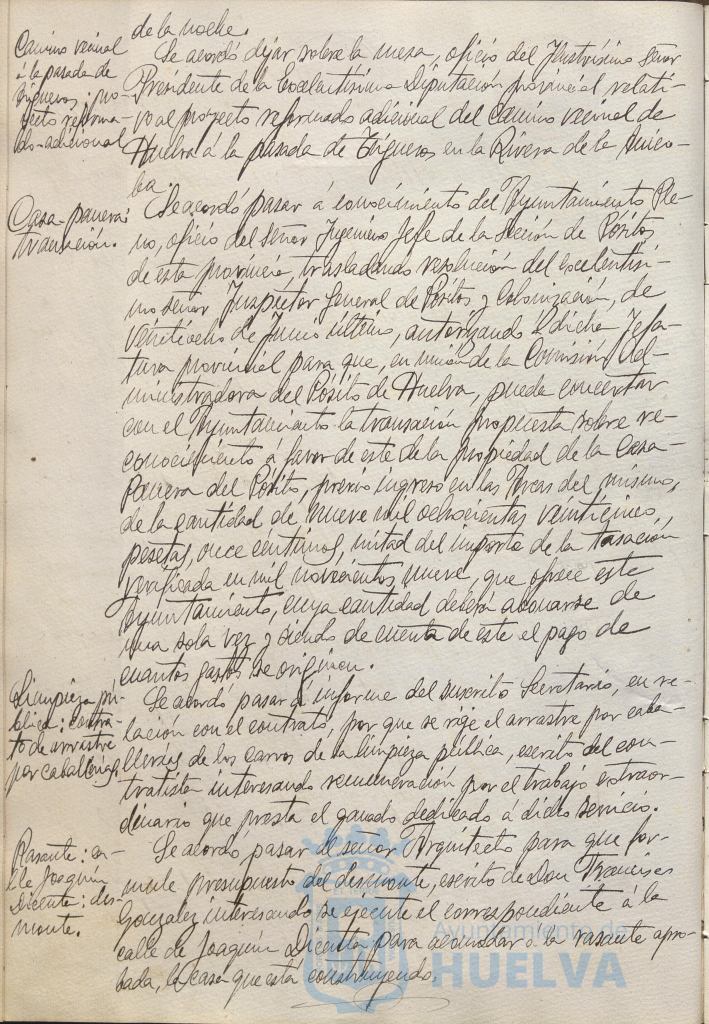 de la noche.
Camino vecinal
á la pasada de
Trigueros: pro-
yecto reforma-
do-adicional
Se acordó dejar sobre la mesa, oficio del Ilustrísimo Señor
Presidente de la Excelentísima Diputación provincial relati-
vo al proyecto reformado adicional del Camino vecinal de
Huelva á la pasada de Trigueros en la Rivera de la Nico-
ba.
Casa-panera:
transación.
Se acordó pasar á conocimiento del Ayuntamiento Ple-
no, oficio del Señor Ingeniero Jefe de la Sección de Pósitos
de esta provincia, trasladando resolución del Excelentísi-
mo señor Inspector General de Pósitos y Colonización, de
veintiocho de Junio último, autorizando á dicha Jefa-
tura provincial para que, en unión de la Comisión Ad-
ministradora del Pósito de Huelva, pueda concertar
con el Ayuntamiento la transación propuesta sobre re-
conocimiento á favor de este de la propiedad de la Casa-
Panera del Pósito, previo ingreso en las Arcas del mismo,
de la cantidad de nueve mil ochocientas veinticinco
pesetas, once céntimos, mitad del importe de la tasación
verificada en mil novecientos nueve, que ofrece este
Ayuntamiento, cuya cantidad deberá abonarse de
una sola vez y siendo de cuenta de este el pago de
cuantos gastos se originen.
Limpieza pú-
blica: contra-
to de arrastre
por caballerías.
Se acordó pasar á informe del suscrito Secretario, en re-
lación con el contrato, por que se rige el arrastre por caba-
llerías de los carros de la limpieza pública, escrito del con-
tratista interesando remuneración por el trabajo extraor-
dinario que presta el ganado dedicado á dicho servicio.
Rasante: ca-
lle Joaquín
Dicenta: des-
monte.
Se acordó pasar al señor Arquitecto para que for-
mule presupuesto del desmonte, escrito de Don Francisco
González interesando se ejecute el correspondiente á la
calle de Joaquín Dicenta para acomodar á la rasante apro-
bada, la casa que está construyendo.
Ayuntamiento de
HUELVA